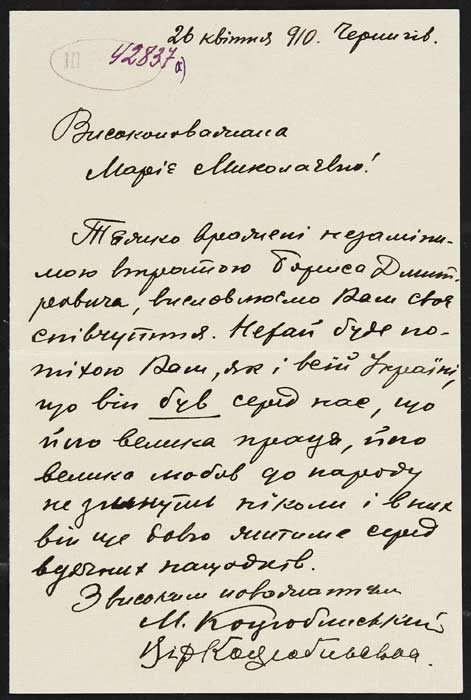 26 квітня 910. Чернигів.
42837 а)
Високоповажана
Маріє Миколаєвно!
Тяжко вражені незаміни-
мою втратою Бориса Дмит-
ровича, висловлюємо Вам своє
співчуття. Нехай буде по-
тіхою Вам, як і всій Україні,
що він був серед нас, що
його велика праця, його
велика любов до народу
не згинуть ніколи і в них
він ще довго житиме серед
вдячних нащадків.
З високим поважанням
М. Коцюбинський
Вѣра Коцюбинська.